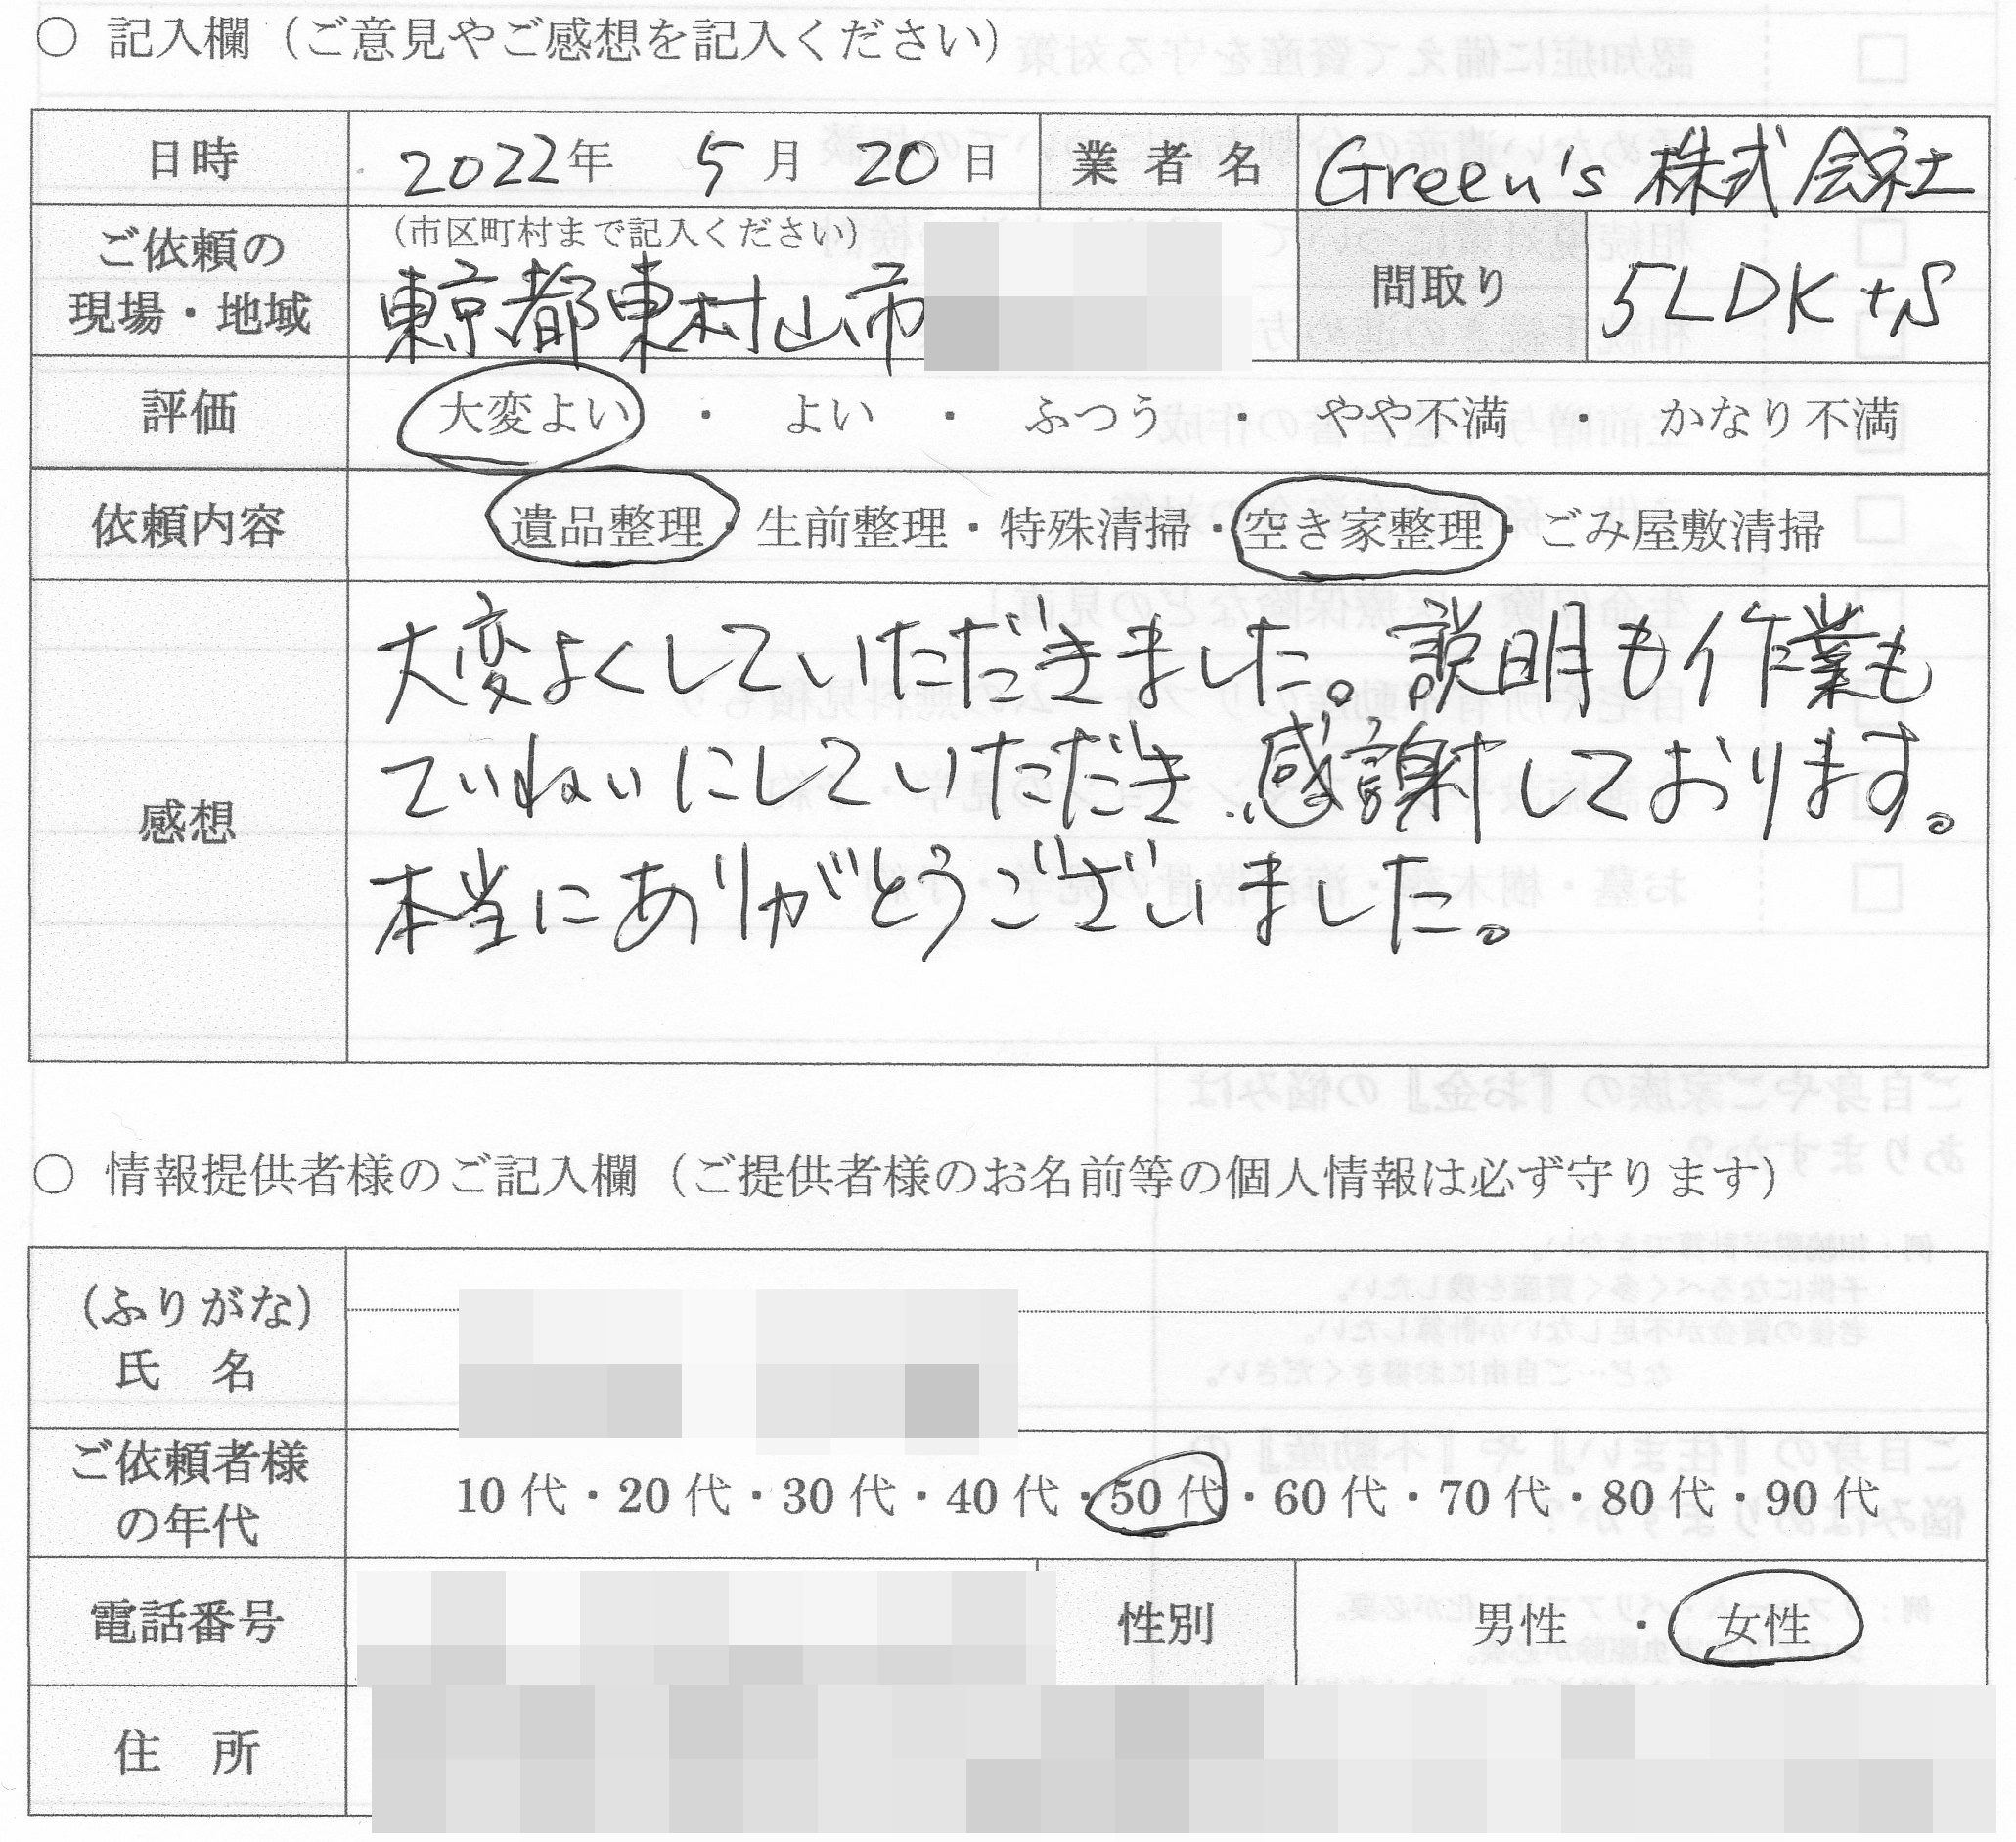 ○ 記入欄（ご意見やご感想を記入ください）
日時 2022年 5月 20日 業者名 Green's 株式会社
ご依頼の現場・地域 （市区町村まで記入ください） 間取り 5LDK+S
東京都東村山市
評価 大変よい ・ よい ・ ふつう ・ やや不満 ・ かなり不満
依頼内容 遺品整理・生前整理・特殊清掃・空き家整理・ごみ屋敷清掃
感想 大変よくしていただきました。説明も作業も
ていねいにしていただき、感謝しております。
本当にありがとうございました。
○ 情報提供者様のご記入欄（ご提供者様のお名前等の個人情報は必ず守ります）
（ふりがな）
氏 名
ご依頼者様の年代 10代・20代・30代・40代・50代・60代・70代・80代・90代
電話番号 性別 男性 ・ 女性
住 所